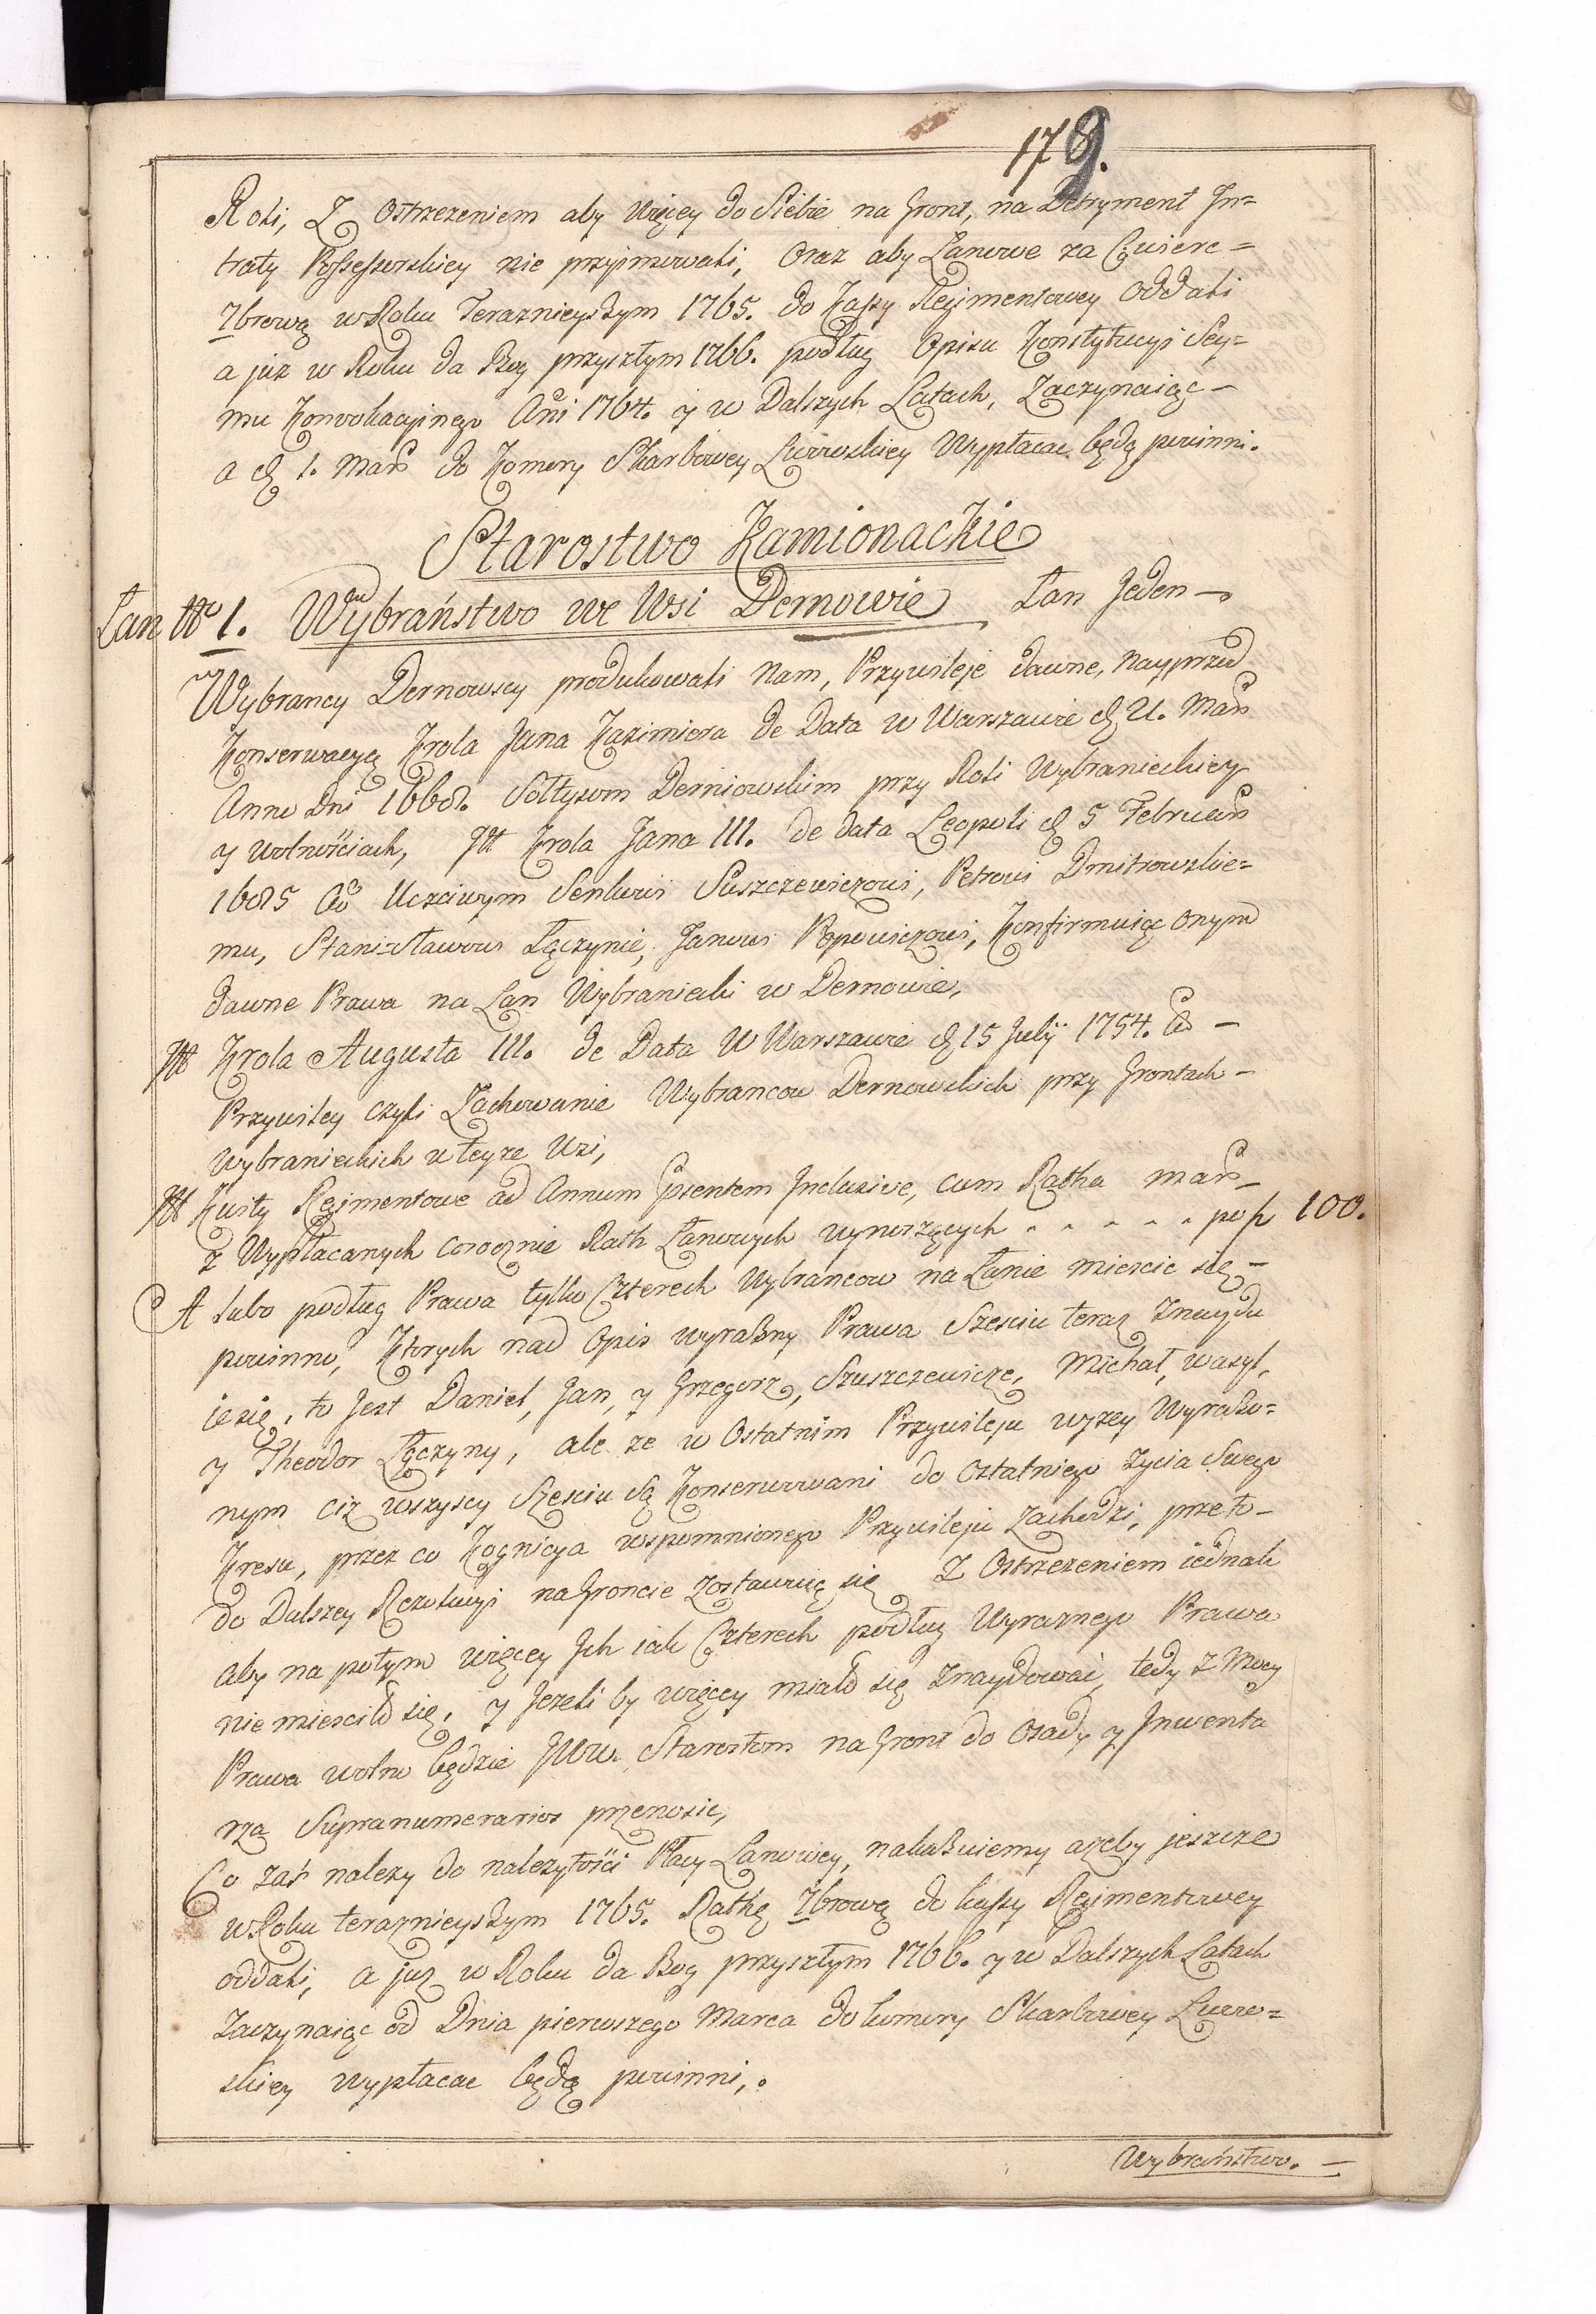 179.
Roli, Z Ostrzezeniem aby więcey do Siebie na Gront, na Detryment In=
traty Possessorskiey nie przyjmowali, Oraz aby Łanowe za Cwierc=
7browę w Roku Teraznieyszym 1765. do Kassy Rejmentowey Oddali
a juz w Roku da Bog przyszłym 1766. podług Opisu Konstytucyi Sey=
mu Konwokacyjnego Añi 1764. y w Dalszych Latach, Zaczynaiąc –
a d 1. Mar do Komory Skarbowey Lwowskiey Wypłacac będą powinni.
Starostwo Kamionackie
Łan No 1. Wybraństwo we Wsi Dernowie Łan Jeden –
Wybrancy Dernowscy produkowali Nam, Przywileje dawne, Nayprzod
Konserwacyą Krola Jana Kazimierza de Data w Warszawie d 21. Mar
Anno Dni 1668. Sołtysom Derniowskim przy Roli Wybranieckiey
y wolnościach, It Krola Jana III. de data Leopoli d 5 Februar
1685 Ao Uczciwym Senkowi Suszczewiczowi, Petrowi Dmitrowskie=
mu, Stanisławowi Łączynie, Janowi Popowiczowi, Konfirmuiąc Onym
dawne Prawa na Łan Wybraniecki w Dernowie,
It Krola Augusta III. de Data W Warszawie d 15 Julÿ 1754. Ao –
Przywiley czyli Zachowanie Wybrancow Dernowskich przy Grontach –
Wybranieckich w teyze Wsi,
It Kwity Rejmentowe ad Annum psentem Inclusive, cum Ratha mar –
z Wypłacanych corocznie Rath Łanowych wynoszących . . . . . po p 100.
A lubo podług Prawa tylko Czterech Wybrancow na Łanie miescic się –
powinno, Ktorych nad Opis wyrazny Prawa Szesciu teraz Znaydu
ie się, to Jest Daniel, Jan, y Grzegorz, Szuszczewicze, Michał, wasyl,
y Theodor Łączyny, ale ze w Ostatnim Przywileju wyzey Wyrazo=
nym ciz wszyscy Szesciu są Konserwowani do ostatniego zycia Swego
Kresu, przez co Kognicya wspomnionego Przywileju Zachodzi, przeto –
do Dalszey Rezolucyi na Groncie zostawuią się Z Ostrzezeniem iednak
aby na potym więcey Ich iak Czterech podług Wyraznego Prawa
nie miesciło się, y Jezeli by więcey miało się znaydowac, tedy z Mocy
Prawa wolno będzie JWW. Starostom na Gront do Osady y Inwenta
rza Supranumerarios przenosic,
Co zas nalezy do nalezytości Płacy Łanowey, nakazuiemy azeby jeszcze
w Roku teraznieyszym 1765. Rathę 7browę do kassy Rejmentowey
oddali, a juz w Roku da Bog przyszłym 1766. y w Dalszych Latach
Zaczynaiąc od Dnia pierwszego Marca do komory Skarbowey Lwow=
skiey wypłacac będą powinni,.
Wybraństwo. –